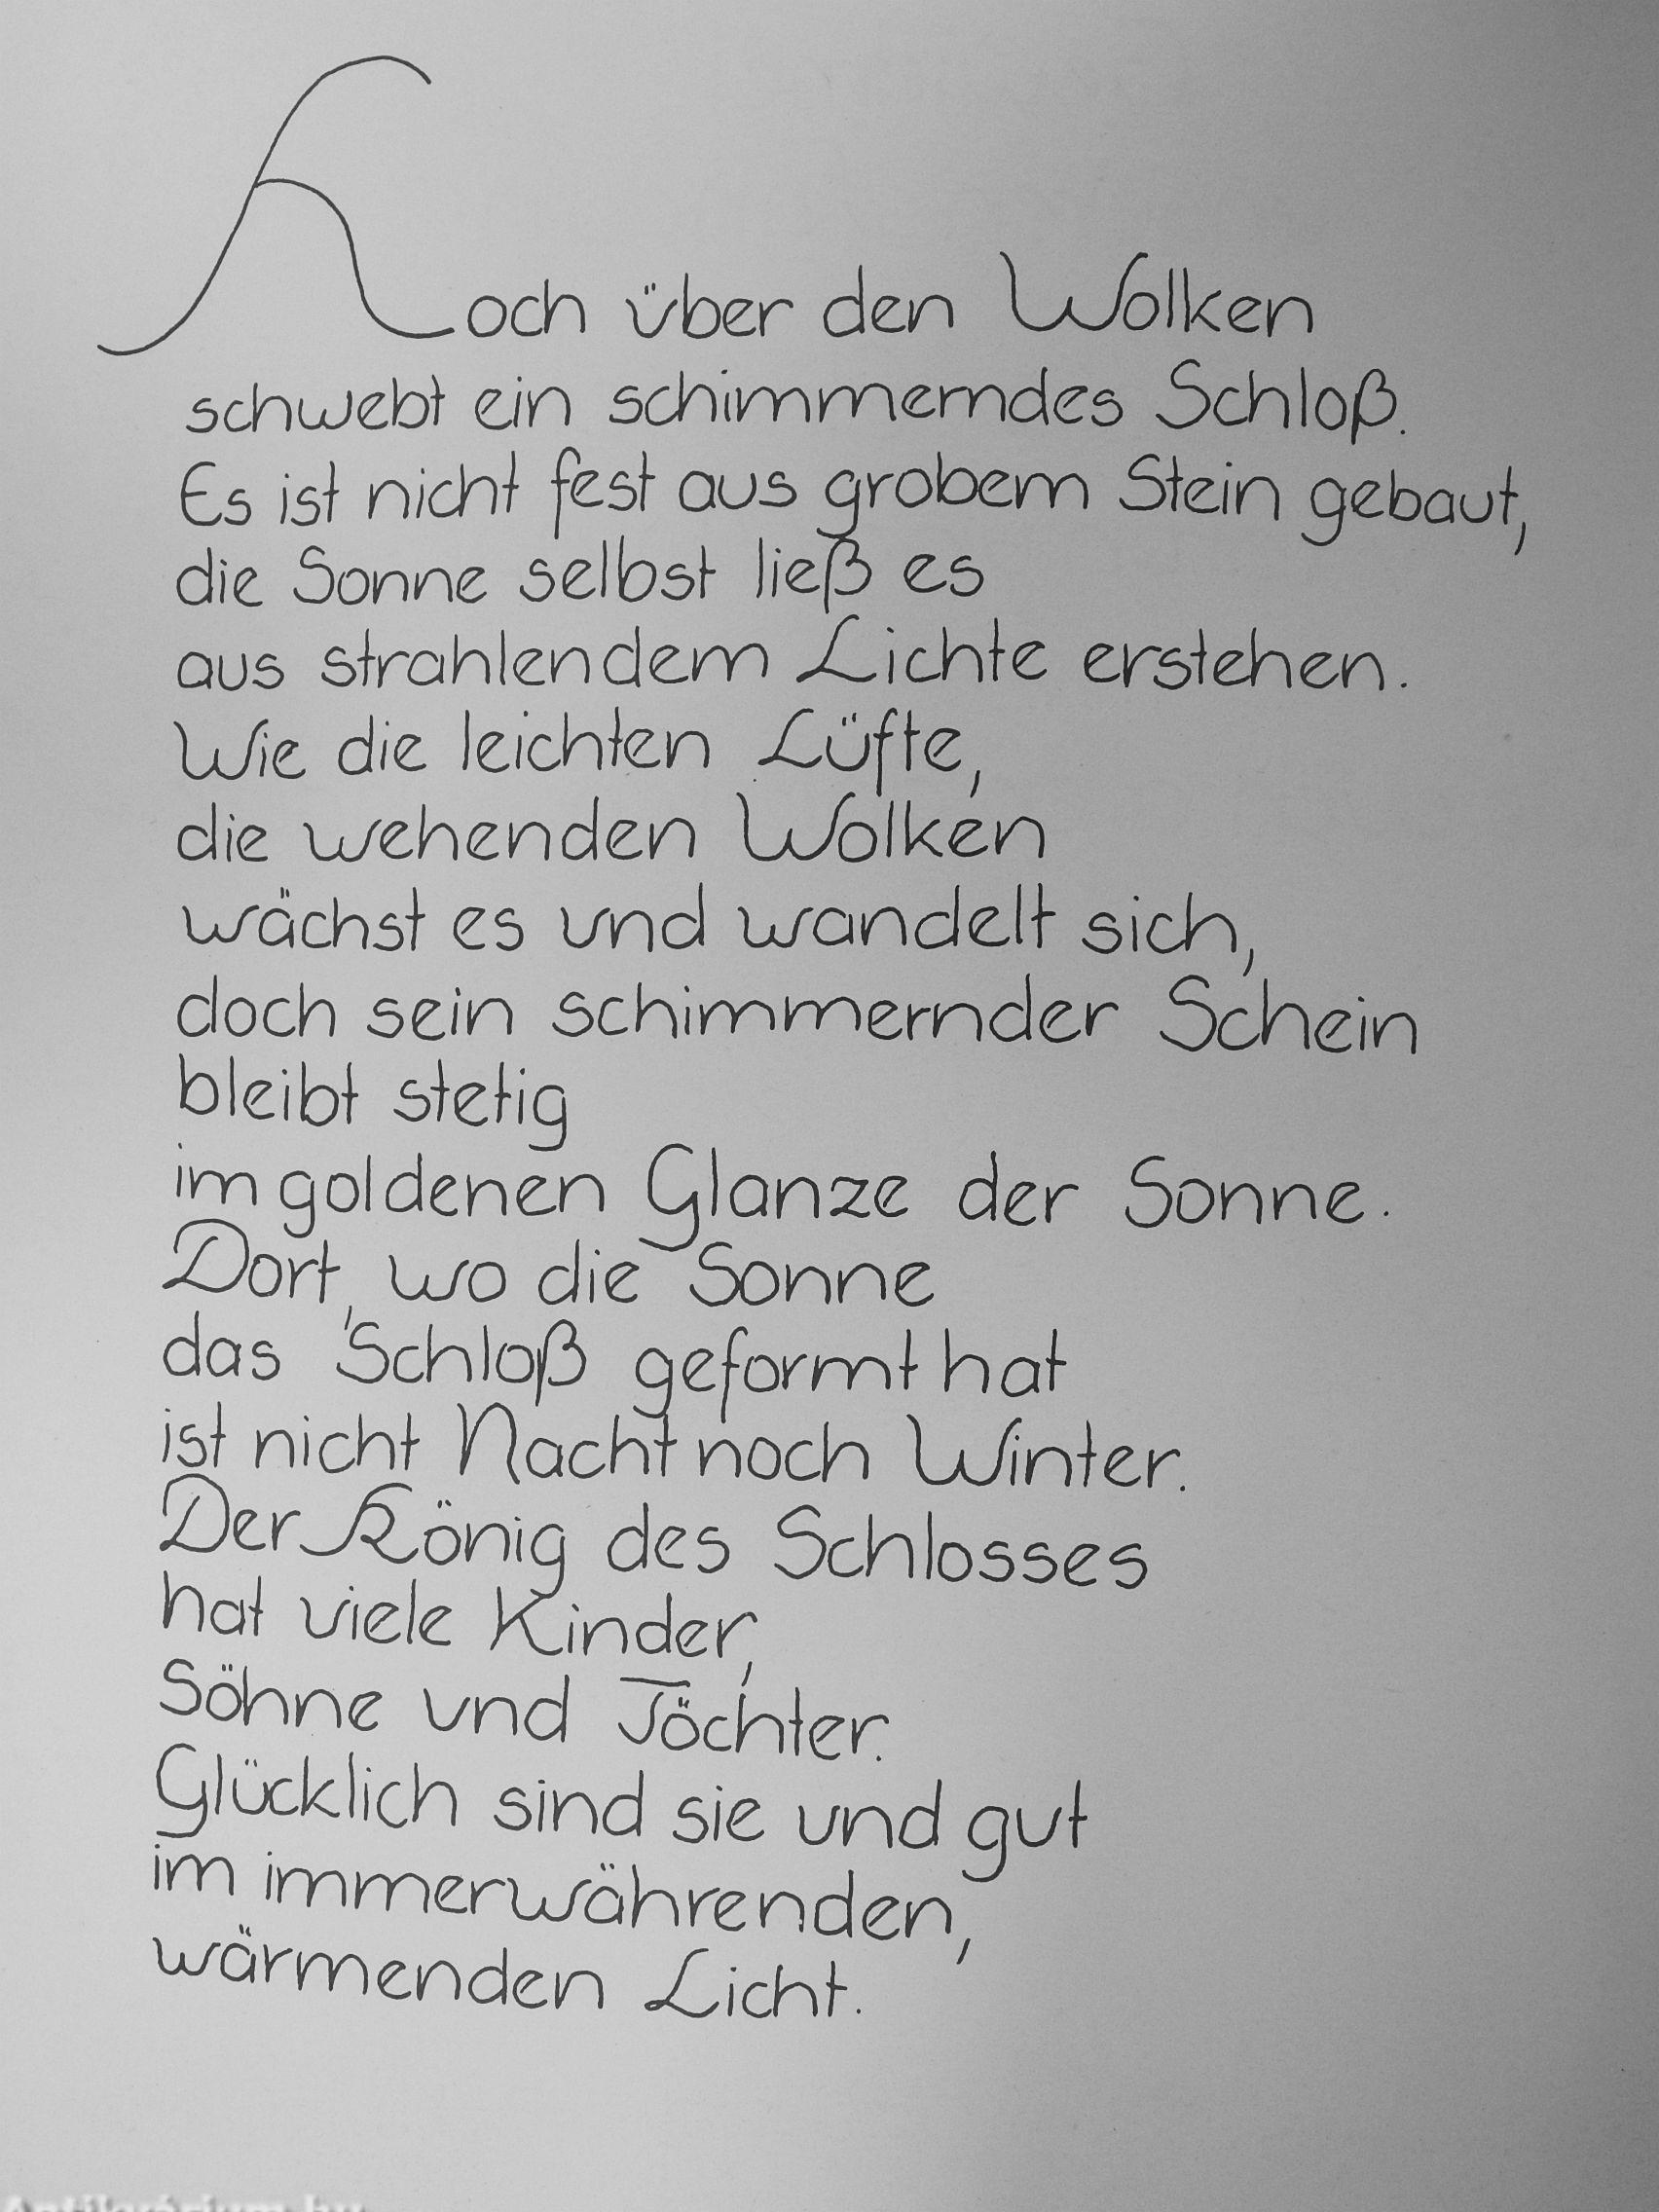 Hoch über den Wolken
schwebt ein schimmerndes Schloß.
Es ist nicht fest aus grobem Stein gebaut,
die Sonne selbst ließ es
aus strahlendem Lichte erstehen.
Wie die leichten Lüfte,
die wehenden Wolken
wächst es und wandelt sich,
doch sein schimmernder Schein
bleibt stetig
im goldenen Glanze der Sonne.
Dort, wo die Sonne
das Schloß geformt hat
ist nicht Nacht noch Winter.
Der König des Schlosses
hat viele Kinder,
Söhne und Töchter.
Glücklich sind sie und gut
im immerwährenden,
wärmenden Licht.